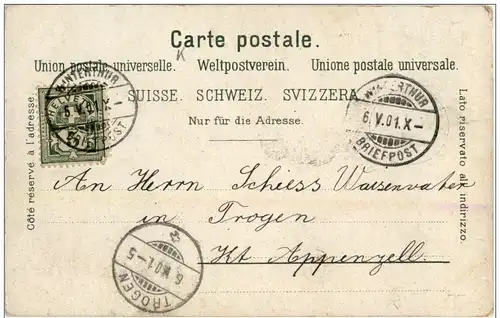 Carte postale.
K
Union postale universelle. Weltpostverein. Unione postale universale.
SUISSE. SCHWEIZ. SVIZZERA.
Nur für die Adresse.
Côté réservé à l'adresse.
Lato riservato all'indirizzo.
WINTERTHUR
6.V.01.X-
BRIEFPOST
HELVETIA
WINTERTHUR
6.V.01.X-
BRIEFPOST
An Herrn Schiess Waisenvater
in Trogen
Kt Appenzell.
6.V.01.-5
TROGEN